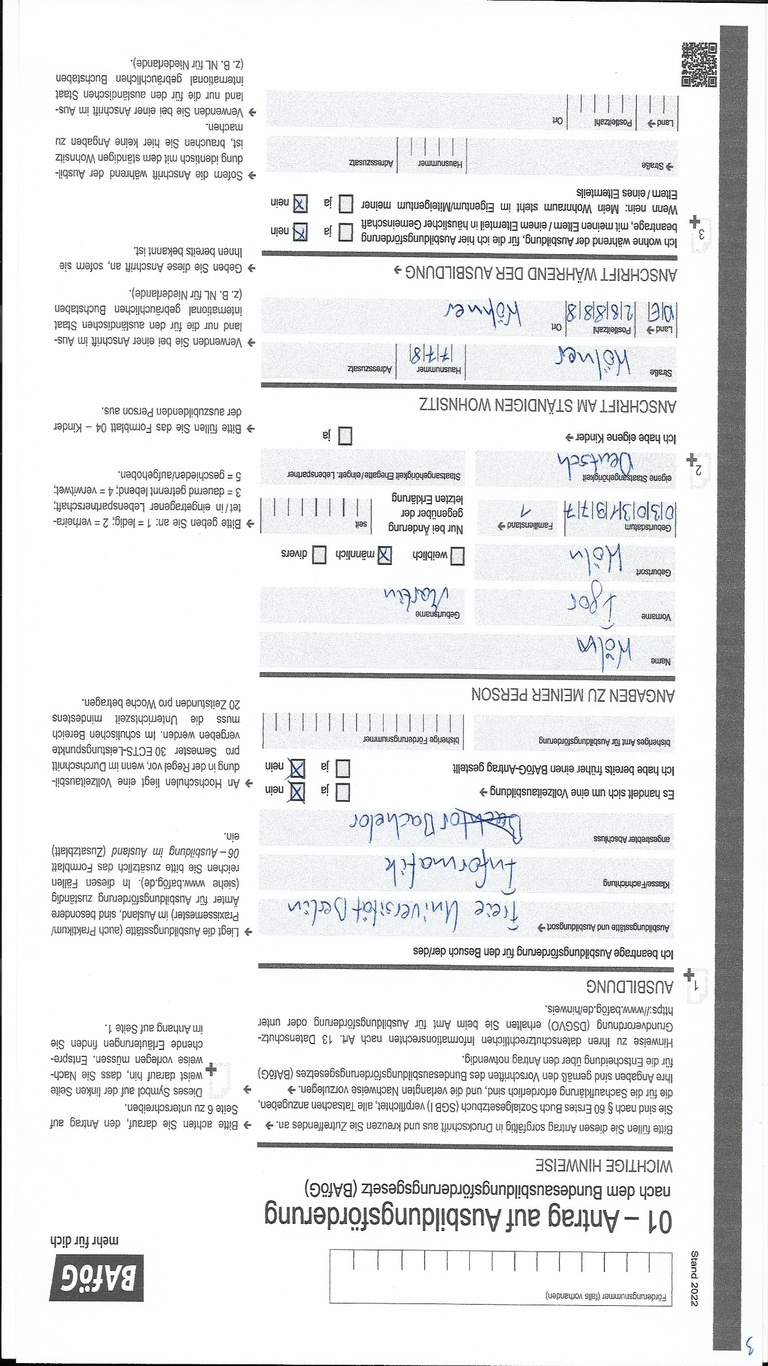 3
Stand 2022
Förderungsnummer (falls vorhanden)
BAföG
mehr für dich
01 – Antrag auf Ausbildungsförderung
nach dem Bundesausbildungsförderungsgesetz (BAföG)
WICHTIGE HINWEISE
Bitte füllen Sie diesen Antrag sorgfältig in Druckschrift aus und kreuzen Sie Zutreffendes an. →
Sie sind nach § 60 Erstes Buch Sozialgesetzbuch (SGB I) verpflichtet, alle Tatsachen anzugeben,
die für die Sachaufklärung erforderlich sind, und die verlangten Nachweise vorzulegen. →
Ihre Angaben sind gemäß den Vorschriften des Bundesausbildungsförderungsgesetzes (BAföG)
für die Entscheidung über den Antrag notwendig.
Hinweise zu Ihren datenschutzrechtlichen Informationsrechten nach Art. 13 Datenschutz-
Grundverordnung (DSGVO) erhalten Sie beim Amt für Ausbildungsförderung oder unter
https://www.bafög.de/hinweis.
→ Bitte achten Sie darauf, den Antrag auf
Seite 6 zu unterschreiben.
→ Dieses Symbol auf der linken Seite
weist darauf hin, dass Sie Nach-
weise vorlegen müssen. Entspre-
chende Erläuterungen finden Sie
im Anhang auf Seite 1.
1
AUSBILDUNG
Ich beantrage Ausbildungsförderung für den Besuch der/des
Ausbildungsstätte und Ausbildungsort → Freie Universität Berlin
Klasse/Fachrichtung Informatik
angestrebter Abschluss Bachelor
Es handelt sich um eine Vollzeitausbildung → ja nein
Ich habe bereits früher einen BAföG-Antrag gestellt ja nein
bisheriges Amt für Ausbildungsförderung bisherige Förderungsnummer
→ Liegt die Ausbildungsstätte (auch Praktikum/
Praxissemester) im Ausland, sind besondere
Ämter für Ausbildungsförderung zuständig
(siehe www.bafög.de). In diesen Fällen
reichen Sie bitte zusätzlich das Formblatt
06 – Ausbildung im Ausland (Zusatzblatt)
ein.
→ An Hochschulen liegt eine Vollzeitausbil-
dung in der Regel vor, wenn im Durchschnitt
pro Semester 30 ECTS-Leistungspunkte
vergeben werden. Im schulischen Bereich
muss die Unterrichtszeit mindestens
20 Zeitstunden pro Woche betragen.
ANGABEN ZU MEINER PERSON
Name Köln
Vorname Igor Geburtsname Martin
Geburtsort Köln weiblich männlich divers
Geburtsdatum 03031977 Familienstand → 1
Nur bei Änderung
gegenüber der
letzten Erklärung
seit
eigene Staatsangehörigkeit Deutsch Staatsangehörigkeit Ehegatte/eingetr. Lebenspartner
2
Ich habe eigene Kinder → ja
→ Bitte geben Sie an: 1 = ledig; 2 = verheira-
tet / in eingetragener Lebenspartnerschaft;
3 = dauernd getrennt lebend; 4 = verwitwet;
5 = geschieden/aufgehoben.
→ Bitte füllen Sie das Formblatt 04 – Kinder
der auszubildenden Person aus.
ANSCHRIFT AM STÄNDIGEN WOHNSITZ
Straße Kölner Hausnummer 778 Adresszusatz
Land → DE Postleitzahl 28888 Ort Köhner
→ Verwenden Sie bei einer Anschrift im Aus-
land nur die für den ausländischen Staat
international gebräuchlichen Buchstaben
(z. B. NL für Niederlande).
ANSCHRIFT WÄHREND DER AUSBILDUNG →
→ Geben Sie diese Anschrift an, sofern sie
Ihnen bereits bekannt ist.
3
Ich wohne während der Ausbildung, für die ich hier Ausbildungsförderung
beantrage, mit meinen Eltern / einem Elternteil in häuslicher Gemeinschaft ja nein
Wenn nein: Mein Wohnraum steht im Eigentum/Miteigentum meiner
Eltern / eines Elternteils ja nein
→ Straße Hausnummer Adresszusatz
Land → Postleitzahl Ort
→ Sofern die Anschrift während der Ausbil-
dung identisch mit dem ständigen Wohnsitz
ist, brauchen Sie hier keine Angaben zu
machen.
→ Verwenden Sie bei einer Anschrift im Aus-
land nur die für den ausländischen Staat
international gebräuchlichen Buchstaben
(z. B. NL für Niederlande).